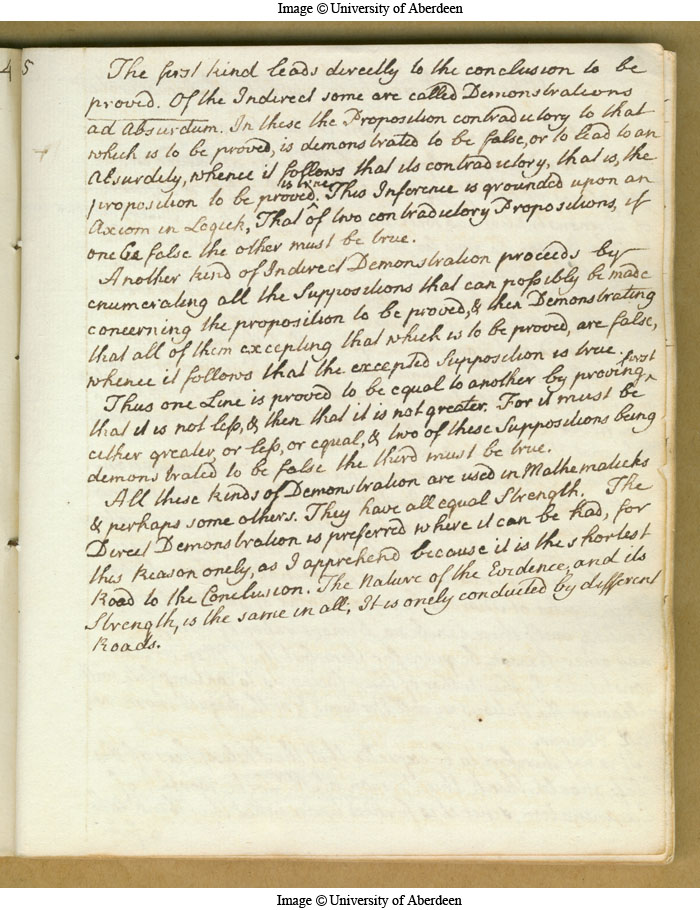 Image © University of Aberdeen
45
The first kind leads directly to the conclusion to be
proved. Of the Indirect some are called Demonstrations
ad Absurdum. In these the Proposition contradictory to that
which is to be proved, is demonstrated to be false, or to lead to an
Absurdity, whence it follows that its contradictory, that is, the
proposition to be proved is true. This Inference is grounded upon an
Axiom in Logick, That of two contradictory Propositions, if
one be false the other must be true.
Another kind of Indirect Demonstration proceeds by
enumerating all the Suppositions that can possibly be made
concerning the proposition to be proved, & then Demonstrating
that all of them excepting that which is to be proved, are false,
whence it follows that the excepted Supposition is true.
Thus one Line is proved to be equal to another by proving first
that it is not less, & then that it is not greater. For it must be
either greater, or less, or equal, & two of these Suppositions being
demonstrated to be false the third must be true.
All these kinds of Demonstration are used in Mathematicks
& perhaps some others. They have all equal Strength. The
Direct Demonstration is preferred where it can be had, for
this Reason onely, as I apprehend because it is the shortest
Road to the Conclusion. The Nature of the Evidence, and its
Strength, is the same in all; It is onely conducted by different
Roads.
Image © University of Aberdeen